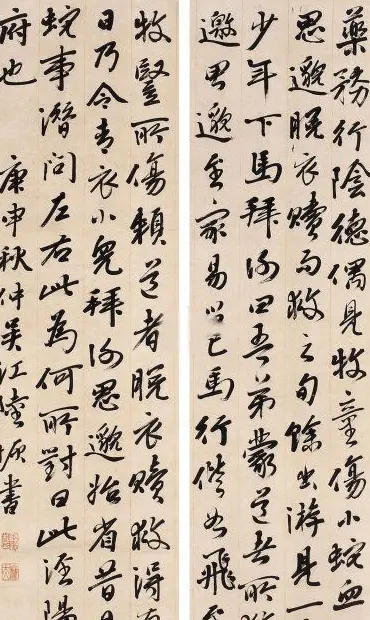 藥務行陰德偶見牧童傷小蛇血
思邈脫衣贖而救之旬餘出游見一
少年下馬拜謝曰吾弟蒙道者所
邀思邈至家易以己馬行偕如飛
牧豎所傷賴道者脫衣贖救得有
日乃令青衣小兒拜謝思邈始省昔日
蛇事潛問左右此為何所對曰此涇陽
府也 庚申秋仲吳江陸恢書